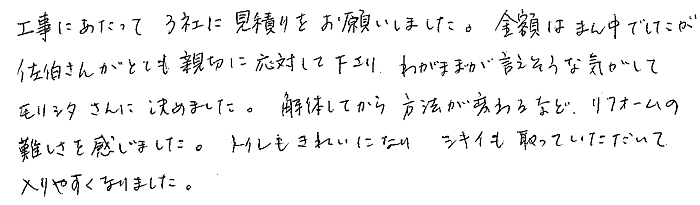 工事にあたって 3社に見積りをお願いしました。金額はまん中でしたが
佐伯さんがとても親切に応対して下さり、わがままが言えそうな気がして
モリシタさんに決めました。解体してから方法が変わるなど、リフォームの
難しさを感じました。トイレもきれいになり シキイも取っていただいて
入りやすくなりました。